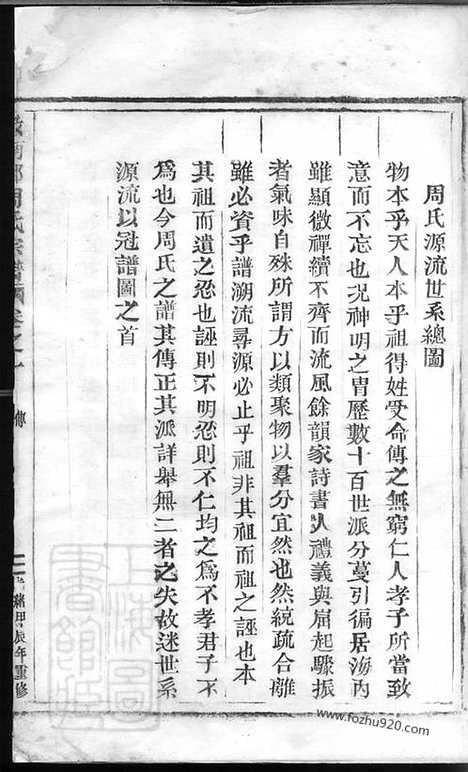 周氏源流世系總圖
物本乎天人本乎祖得姓受命傳之無窮仁人孝子所當致
意而不忘也况神明之胄歷數十百世派分蔓引徧居海內
雖顯微禪續不齊而流風餘韻家詩書人禮義與崫起驟振
者氣味自殊所謂方以類聚物以羣分宜然也然統疏合離
雖必資乎譜溯流尋源必止乎祖非其祖而祖之誣也本
其祖而遺之忍也誣則不明忍則不仁均之為不孝君子不
為也今周氏之譜其傳正其派詳舉無二者之失故述世系
源流以冠譜圖之首
周氏宗譜
傳
緒甲辰年重修
上海圖
書館藏
www.fozhu920.com